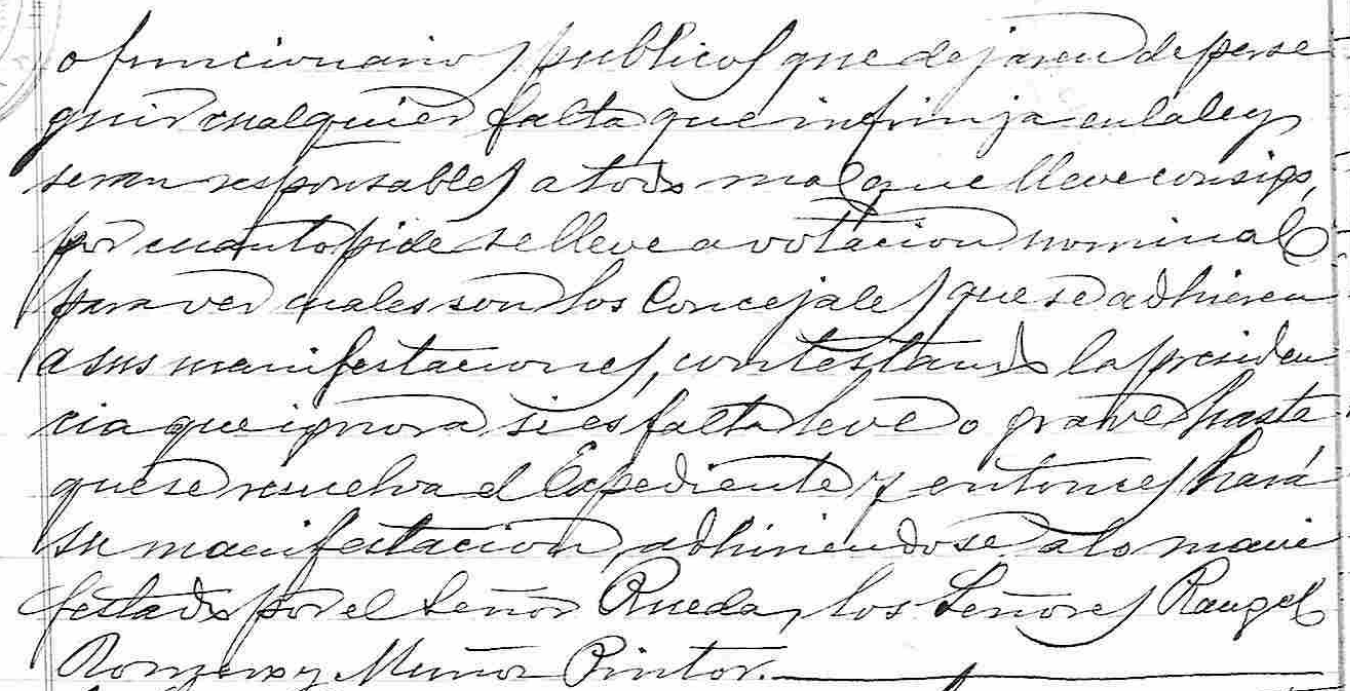 o funcionarios publicos que dejaren de perse
guir cualquier falta que infrinja en la ley
seran responsables a todo mal que lleve consigo,
por cuanto pide se lleve a votacion nominal
para ver cuales son los Concejales que se adhieren
a sus manifestaciones, contestando la presiden
cia que ignora si es falta leve o grave hasta
que se resuelva el Expediente y entonces hará
su manifestacion, adhiriendose a lo mani
festado por el Señor Rueda, los Señores Rangel
Romero y Muñoz Pintor.